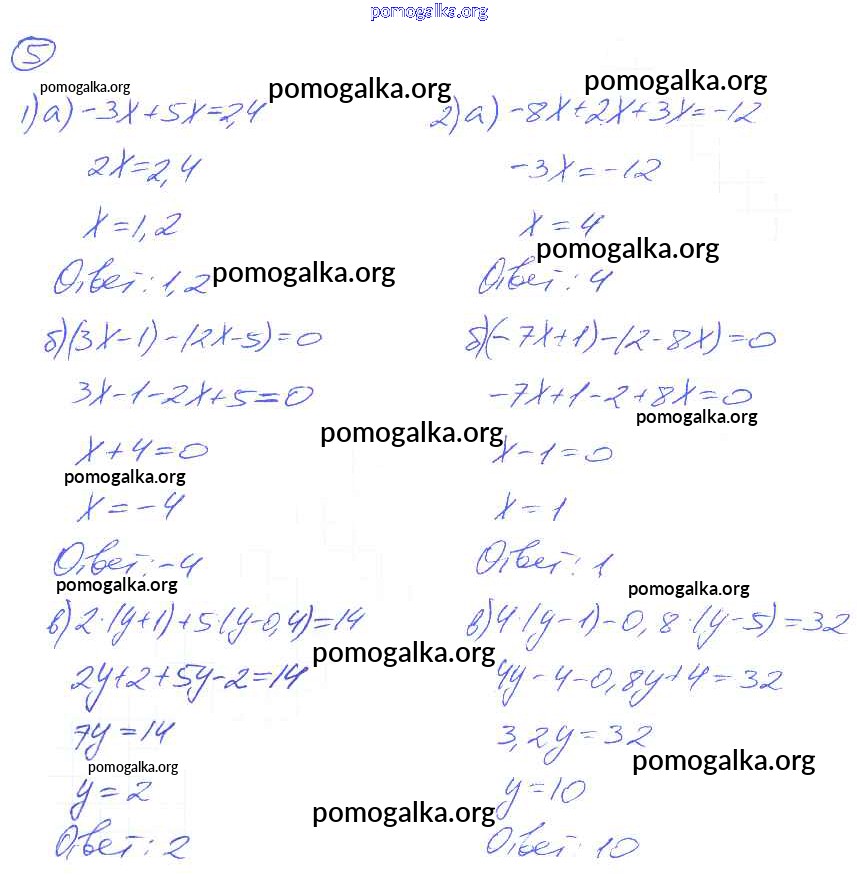 pomogalka.org
5
pomogalka.org
pomogalka.org
1) а) -3x+5x=2,4
2x=2,4
x=1,2
Ответ: 1,2
pomogalka.org
б) (3x-1)-(2x-5)=0
3x-1-2x+5=0
x+4=0
pomogalka.org
pomogalka.org
x=-4
Ответ: -4
pomogalka.org
в) 2·(y+1)+5·(y-0,4)=14
pomogalka.org
2y+2+5y-2=14
7y=14
pomogalka.org
y=2
pomogalka.org
Ответ: 2
pomogalka.org
2) а) -8x+2x+3x=-12
-3x=-12
x=4
pomogalka.org
Ответ: 4
б) (-7x+1)-(2-8x)=0
-7x+1-2+8x=0
pomogalka.org
x-1=0
x=1
Ответ: 1
pomogalka.org
в) 4·(y-1)-0,8·(y-5)=32
4y-4-0,8y+4=32
3,2y=32
pomogalka.org
y=10
Ответ: 10